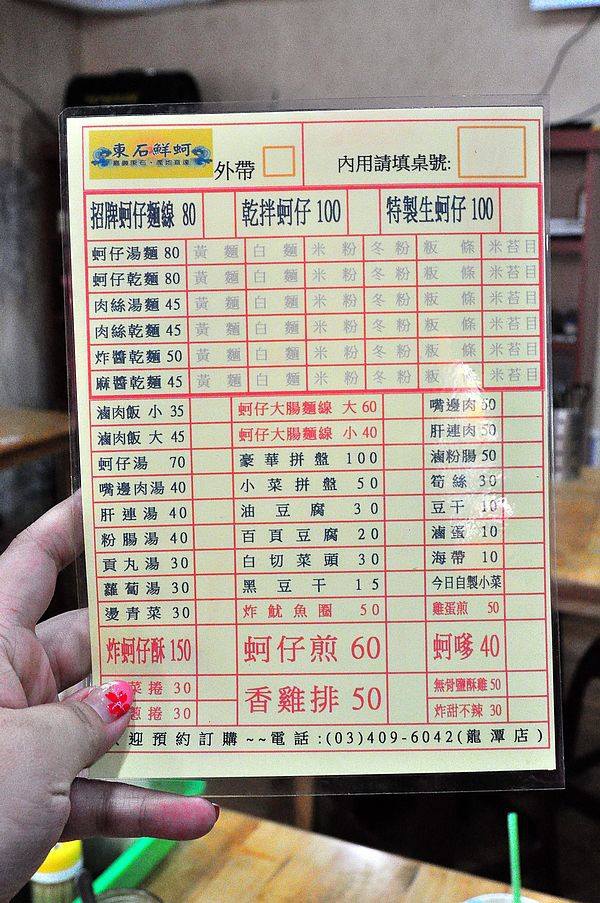 東石鮮蚵
外帶 內用請填桌號:
招牌蚵仔麵線 80 乾拌蚵仔 100 特製生蚵仔 100
蚵仔湯麵 80 黃麵 白麵 米粉 冬粉 粄條 米苔目
蚵仔乾麵 80 黃麵 白麵 米粉 冬粉 粄條 米苔目
肉絲湯麵 45 黃麵 白麵 米粉 冬粉 粄條 米苔目
肉絲乾麵 45 黃麵 白麵 米粉 冬粉 粄條 米苔目
炸醬乾麵 50 黃麵 白麵 米粉 冬粉 粄條 米苔目
麻醬乾麵 45 黃麵 白麵 米粉 冬粉 粄條 米苔目
滷肉飯 小 35 蚵仔大腸麵線 大 60 嘴邊肉 50
滷肉飯 大 45 蚵仔大腸麵線 小 40 肝連肉 50
蚵仔湯 70 豪華拼盤 100 滷粉腸 50
嘴邊肉湯 40 小菜拼盤 50 筍絲 30
肝連湯 40 油豆腐 30 豆干 10
粉腸湯 40 百頁豆腐 20 滷蛋 10
貢丸湯 30 白切菜頭 30 海帶 10
蘿蔔湯 30 黑豆干 15 今日自製小菜
燙青菜 30 炸魷魚圈 50 雞蛋煎 50
炸蚵仔酥 150 蚵仔煎 60 蚵嗲 40
菜捲 30 香雞排 50 無骨鹽酥雞 50
捲 30 炸甜不辣 30
迎預約訂購~~電話:(03)409-6042(龍潭店)